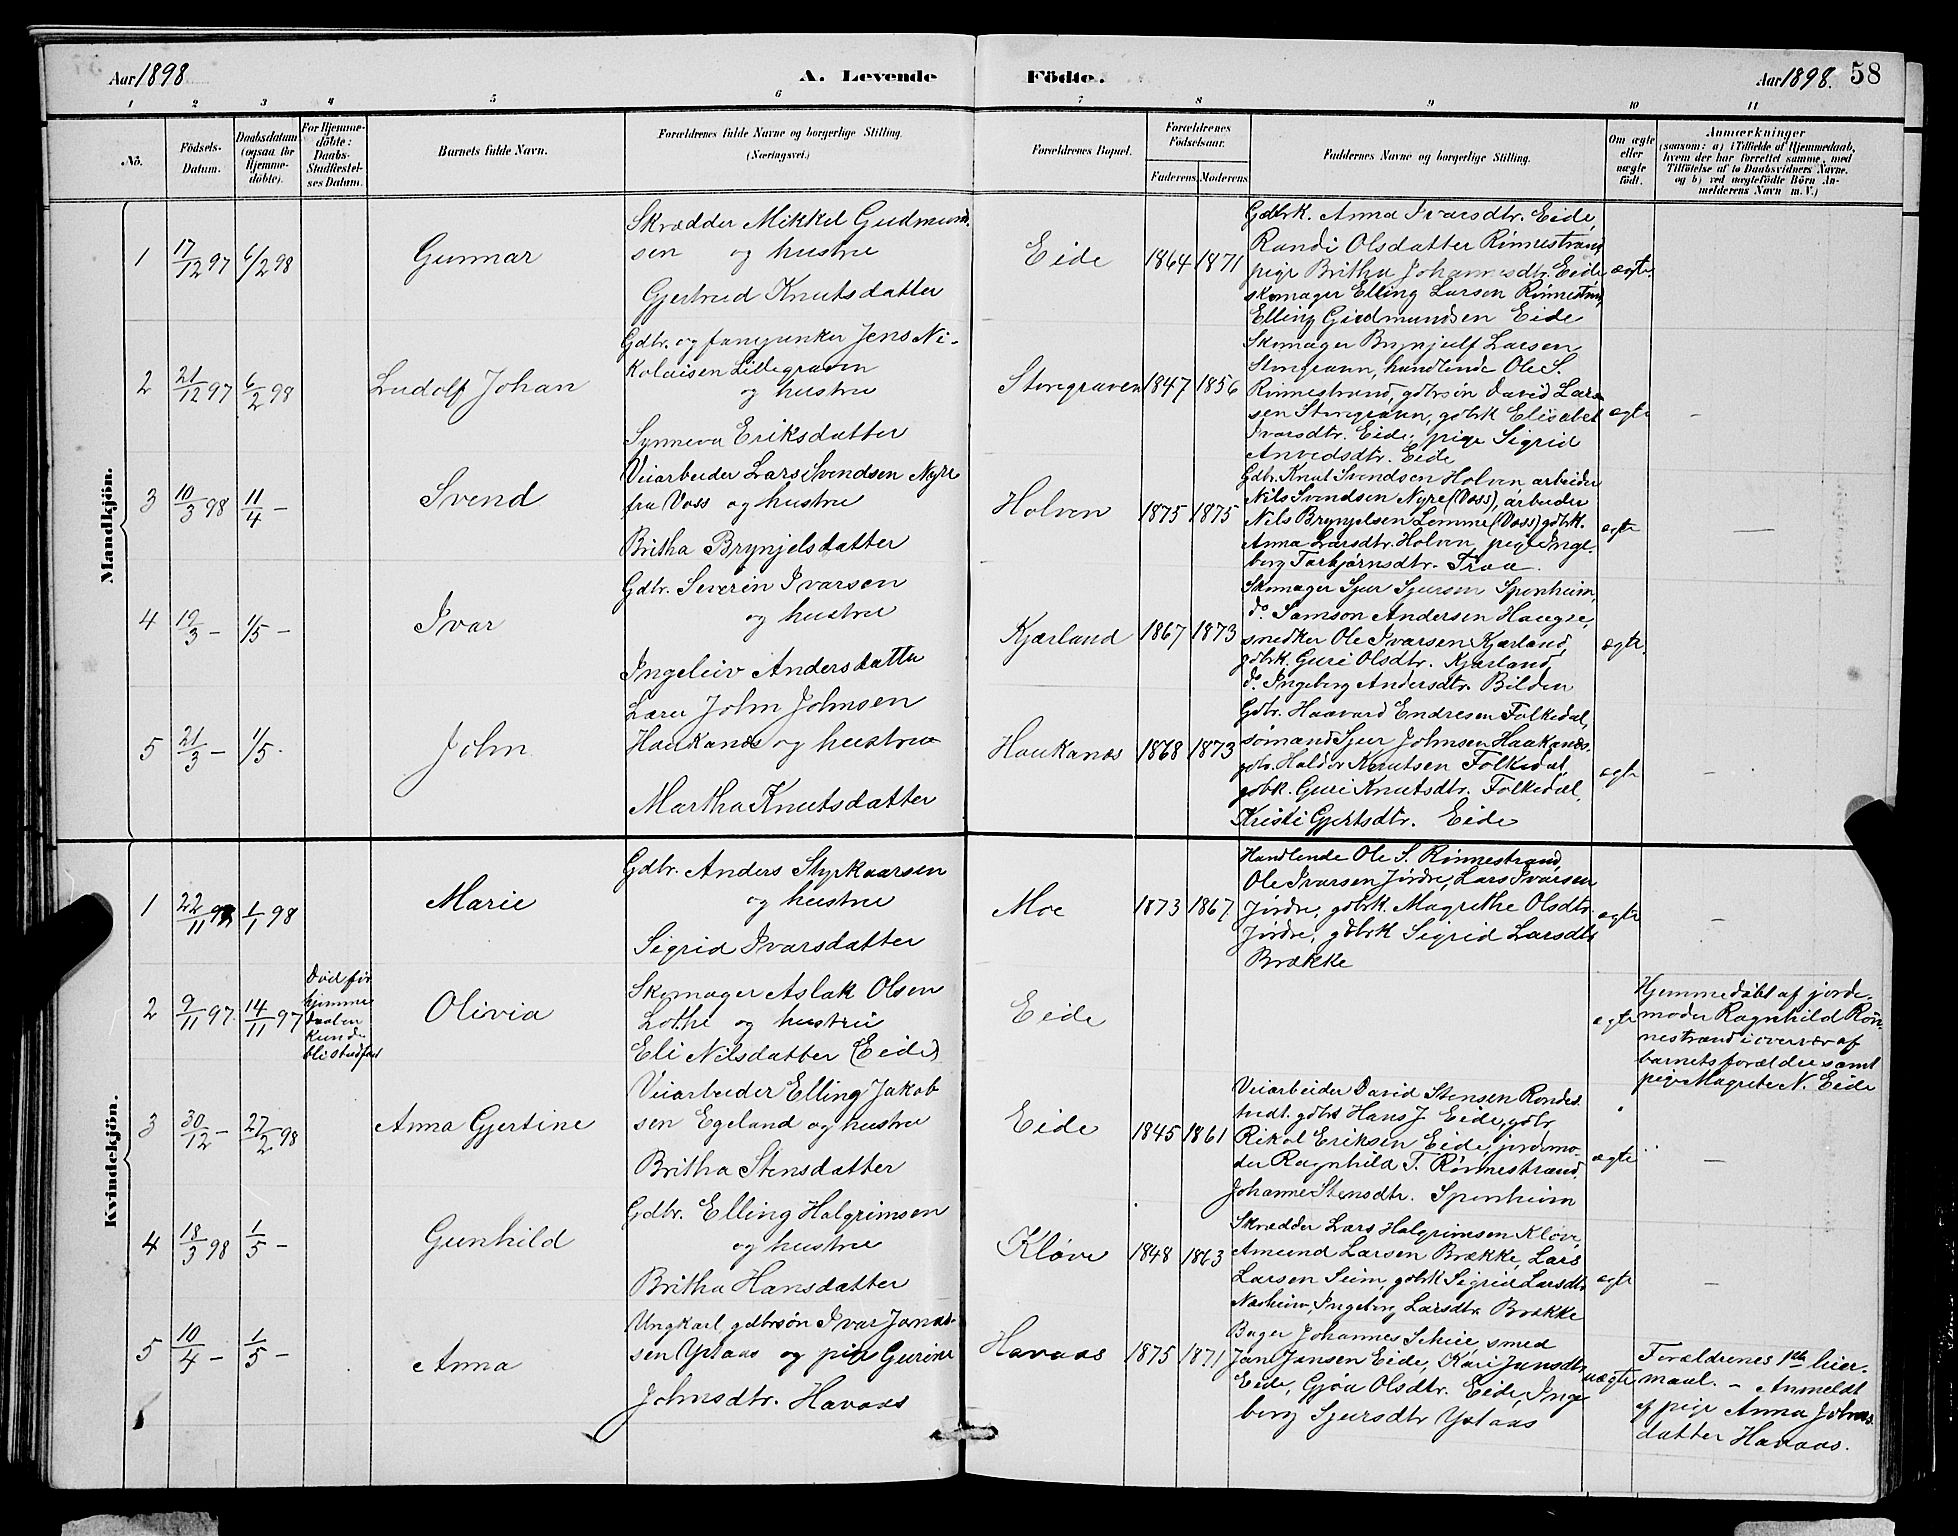 Aar 1898
A. Levende
Fødte.
Aar 1898. 58
1 2 3 4 5 6 7 8 9 10 11
No.
Fødsels-
Datum.
Daabsdatum
(ogsaa for
Hjemme-
døbte).
For Hjemme-
døbte:
Daabs-
Stadfæstel-
ses Datum.
Barnets fulde Navn.
Forældrenes fulde Navne og borgerlige Stilling.
(Næringsvei.)
Forældrenes Bopæl.
Forældrenes
Fødselsaar.
Faderens. Moderens.
Faddernes Navne og borgerlige Stilling.
Om ægte
eller
uægte
født.
Anmærkninger
(saasom: a) i Tilfælde af Hjemmedaab,
hvem der har forrettet samme, med
Tilføielse af to Daabsvidners Navne.
og b) ved uægtefødte Børn An-
melderens Navn m. V.)
Mandkjøn.
1
17/12 97
6/2 98
Gunnar
Skrædder Mikkel Gudmund-
sen og hustru
Gjertrud Knutsdatter
Eide
1864
1871
Gdbrk. Anna Ivarsdtr. Eide,
Randi Olsdatter Rønnestrand,
pige Britha Johannesdtr. Eide
skomager Elling Larsen Rønnestrand,
Elling Gudmundsen Eide
ægte.
2
21/12 97
6/2 98
Ludolf Johan
Gdbr. og fanejunker Jens Ni-
kolaisen Lillegraven
og hustru
Synneva Eriksdatter
Storegraven
1847
1856
Skomager Brynjulf Larsen
Storegravn, handlende Ole S.
Rønnestrand, gdbrsøn David Lar-
sen Storegravn, gdbrk Elisabet
Ivarsdtr. Eide, pige Sigrid
Arvedsdtr. Eide
ægte
–
3
10/3 98
11/4 –
Svend
Veiarbeider Lars Svendsen Nyre
fra Voss og hustru
Britha Brynjelsdatter
Holven
1875
1875
Gdbr. Knut Svendsen Holven arbeider
Nils Svendsen Nyre (Voss), arbeider
Nils Brynjelsen Lemme (Voss) gdbrk.
Anna Larsdtr. Holven, pige Inge-
borg Torbjørnsdtr. Traa.
ægte
–
4
19/3 –
1/5 –
Ivar
Gdbr. Severin Ivarsen
og hustru
Ingeleiv Andersdatter
Kjærland
1867
1873
Skomager Sjur Sjursen Sponheim,
do. Samson Andersen Hauge,
snedker Ole Ivarsen Kjærland,
gdbrk. Guri Olsdtr. Kjærland,
do. Ingeborg Andersdtr. Bilden
ægte.
5
21/3 –
1/5.
John
Lærer John Johnsen
Haukanæs og hustru
Martha Knutsdatter
Haukanæs
1868
1873
Gdbr. Haavard Endresen Folkedal,
sømand Sjur Johnsen Haukanæs.
gdbr. Haldor Knutsen Folkedal,
gdbrk. Guri Knutsdtr. Folkedal,
Kristi Gjertsdtr. Eide
ægte
–
Kvindekjøn.
1
22/11 97
1/1 98
Marie
Gdbr. Anders Styrkaarsen
og hustru
Sigrid Ivarsdatter
Moe
1873
1867
Handlende Ole S. Rønnestrand,
Ole Ivarsen Jørdre, Lars Ivarsen
Jørdre, gdbrk. Magrethe Olsdtr.
Jørdre, gdbrk Sigrid Larsdtr
Brække
ægte
–
2
9/11 97.
14/11 97
Død før
hjemme-
daaben
kunde
bli stadfæst
Olivia
Skomager Aslak Olsen
Lothe og hustru
Eli Nilsdatter (Eide)
Eide
ægte
Hjemmedøbt af jorde-
moder Ragnhild Røn-
nestrand i overvær af
barnets forældre samt
pige Magrete N. Eide
3
30/12 –
27/2 98
Anna Gjertine
Veiarbeider Elling Jakob-
sen Egeland og hustru
Britha Stensdatter
Eide
1845
1861
Veiarbeider David Stensen Rondes-
tvedt. gdbr Hans J. Eide, gdbr
Rikol Eriksen Eide, jordmo-
der Ragnhild T. Rønnestrand,
Johanne Stensdtr. Sponheim
ægte
–
4
18/3 98
1/5 –
Gunhild
Gdbr. Elling Halgrimsen
og hustru
Britha Hansdatter
Kløve
1848
1863
Skrædder Lars Halgrimsen Kløve,
Amund Larsen Brække, Lars
Larsen Seim, gdbrk Sigrid Larsdtr
Næsheim, Ingeborg Larsdtr. Brække
ægte
–
5
10/4 –
1/5 –
Anna
Ungkarl gdbrsøn Ivar Jonas-
sen Ystaas og pige Gurine
Johnsdtr. Havaas
Havaas
1875
1871
Bager Johannes Schie, smed
Jan Jansen Eide, Kari Jansdtr
Eide, Gjøa Olsdtr. Eide, Inge-
borg Sjursdtr Ystaas
uægte
Forældrenes 1ste leier-
maal. – Anmeldt
af pige Anna Johns-
datter Havaas.